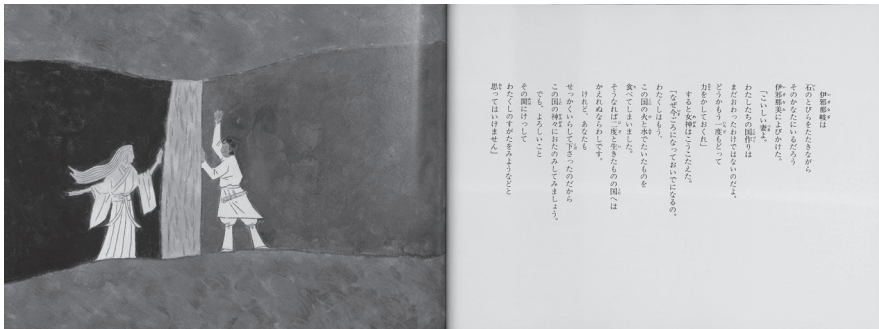 伊邪那岐は
石のとびらをたたきながら
そのかなたにいるだろう
伊邪那美によびかけた。
「こいしい妻よ。
わたしたちの国作りは
まだおわったわけではないのだよ。
どうかもう一度もどって
力をかしておくれ」
すると女神はこうこたえた。
「なぜ今ごろになっておいでになるの。
わたくしはもう、
この国の火と水でたいたものを
食べてしまいました。
そうなれば二度と生きたものの国へは
かえれぬならわしです。
けれど、あなたも
せっかくいらして下さったのだから
この国の神々におたのみしてみましょう。
でも、よろしいこと
その間にけっして
わたくしのすがたをみようなどと
思ってはいけません」